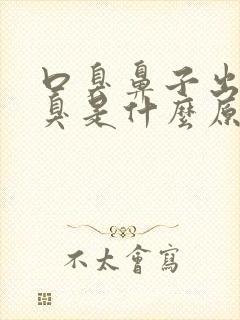 口臭鼻子出
臭是什麼原
不太會寫